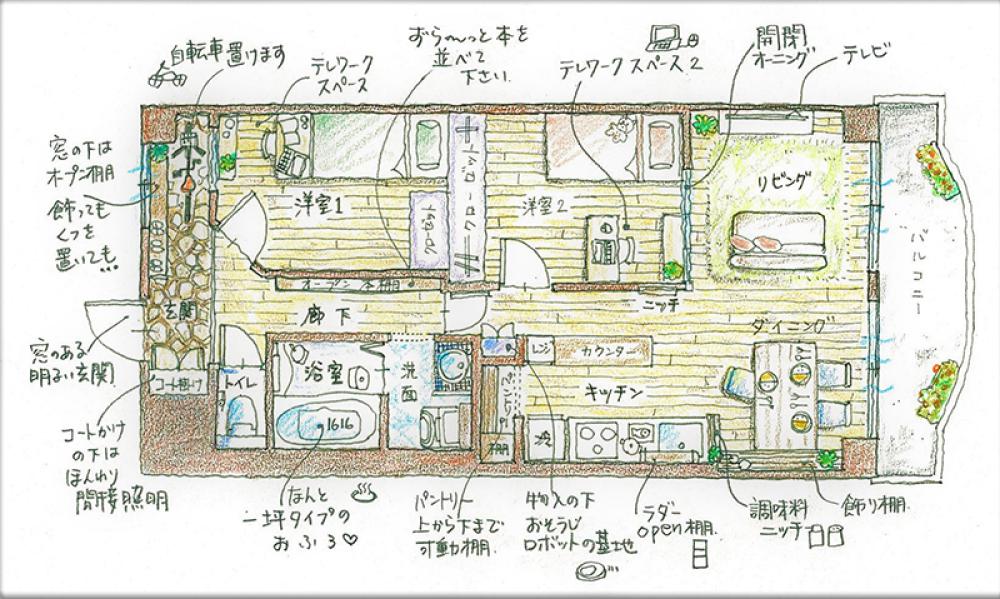 自転車置けます
テレワーク
スペース
ずら〜〜っと本を
並べて
下さい
テレワークスペース2
開閉
オーニング
テレビ
窓の下は
オープン棚
飾っても
くつを
置いても…
洋室1
クローゼット
クローゼット
洋室2
リビング
バルコニー
オープン本棚
ニッチ
玄関
廊下
ダイニング
窓のある
明るい玄関
コート掛け
トイレ
浴室
1616
洗面
レンジ
カウンター
キッチン
冷
棚
コートかけ
の下は
ほんわり
間接照明
なんと
一坪タイプの
おふろ♡
パントリー
上から下まで
可動棚
物入の下
おそうじ
ロボットの基地
ラダー
open棚
調味料
ニッチ
飾り棚